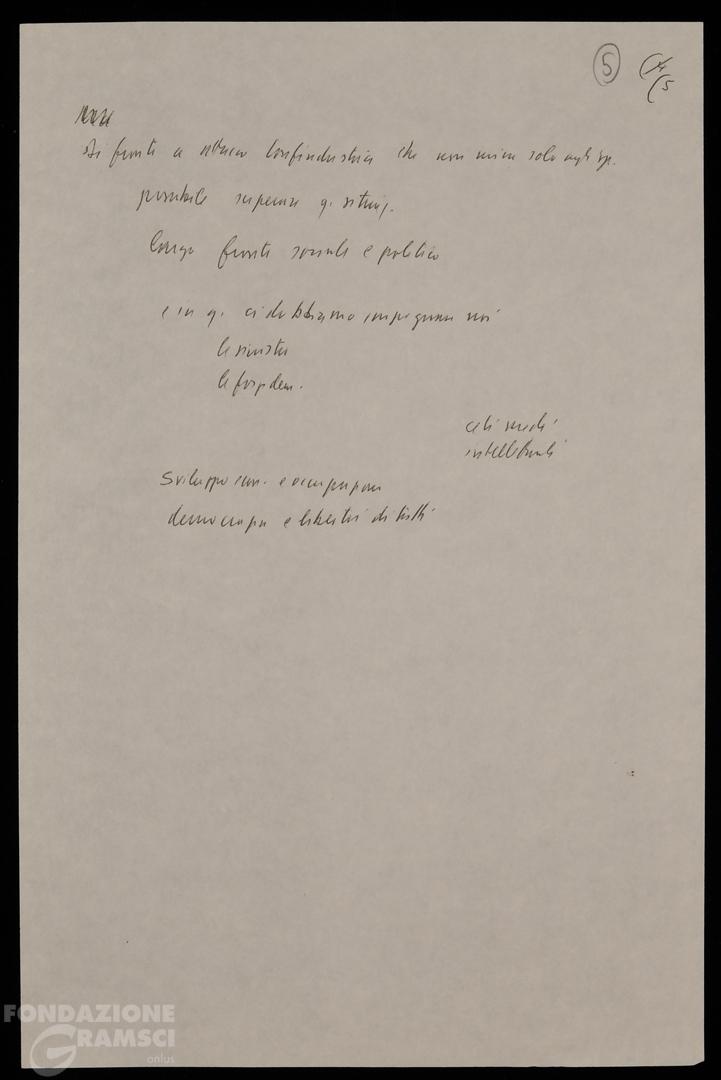 5
di fronte a attacco Confindustria che non mira solo agli op.
possibile superare q. situaz.
largo fronte sociale e politico
e in q. ci dobbiamo impegnare noi
la sinistra
le forze dem.
ceti medi
intellettuali
Sviluppo econ. e occupazione
democrazia e libertà di tutti
FONDAZIONE
GRAMSCI
onlus